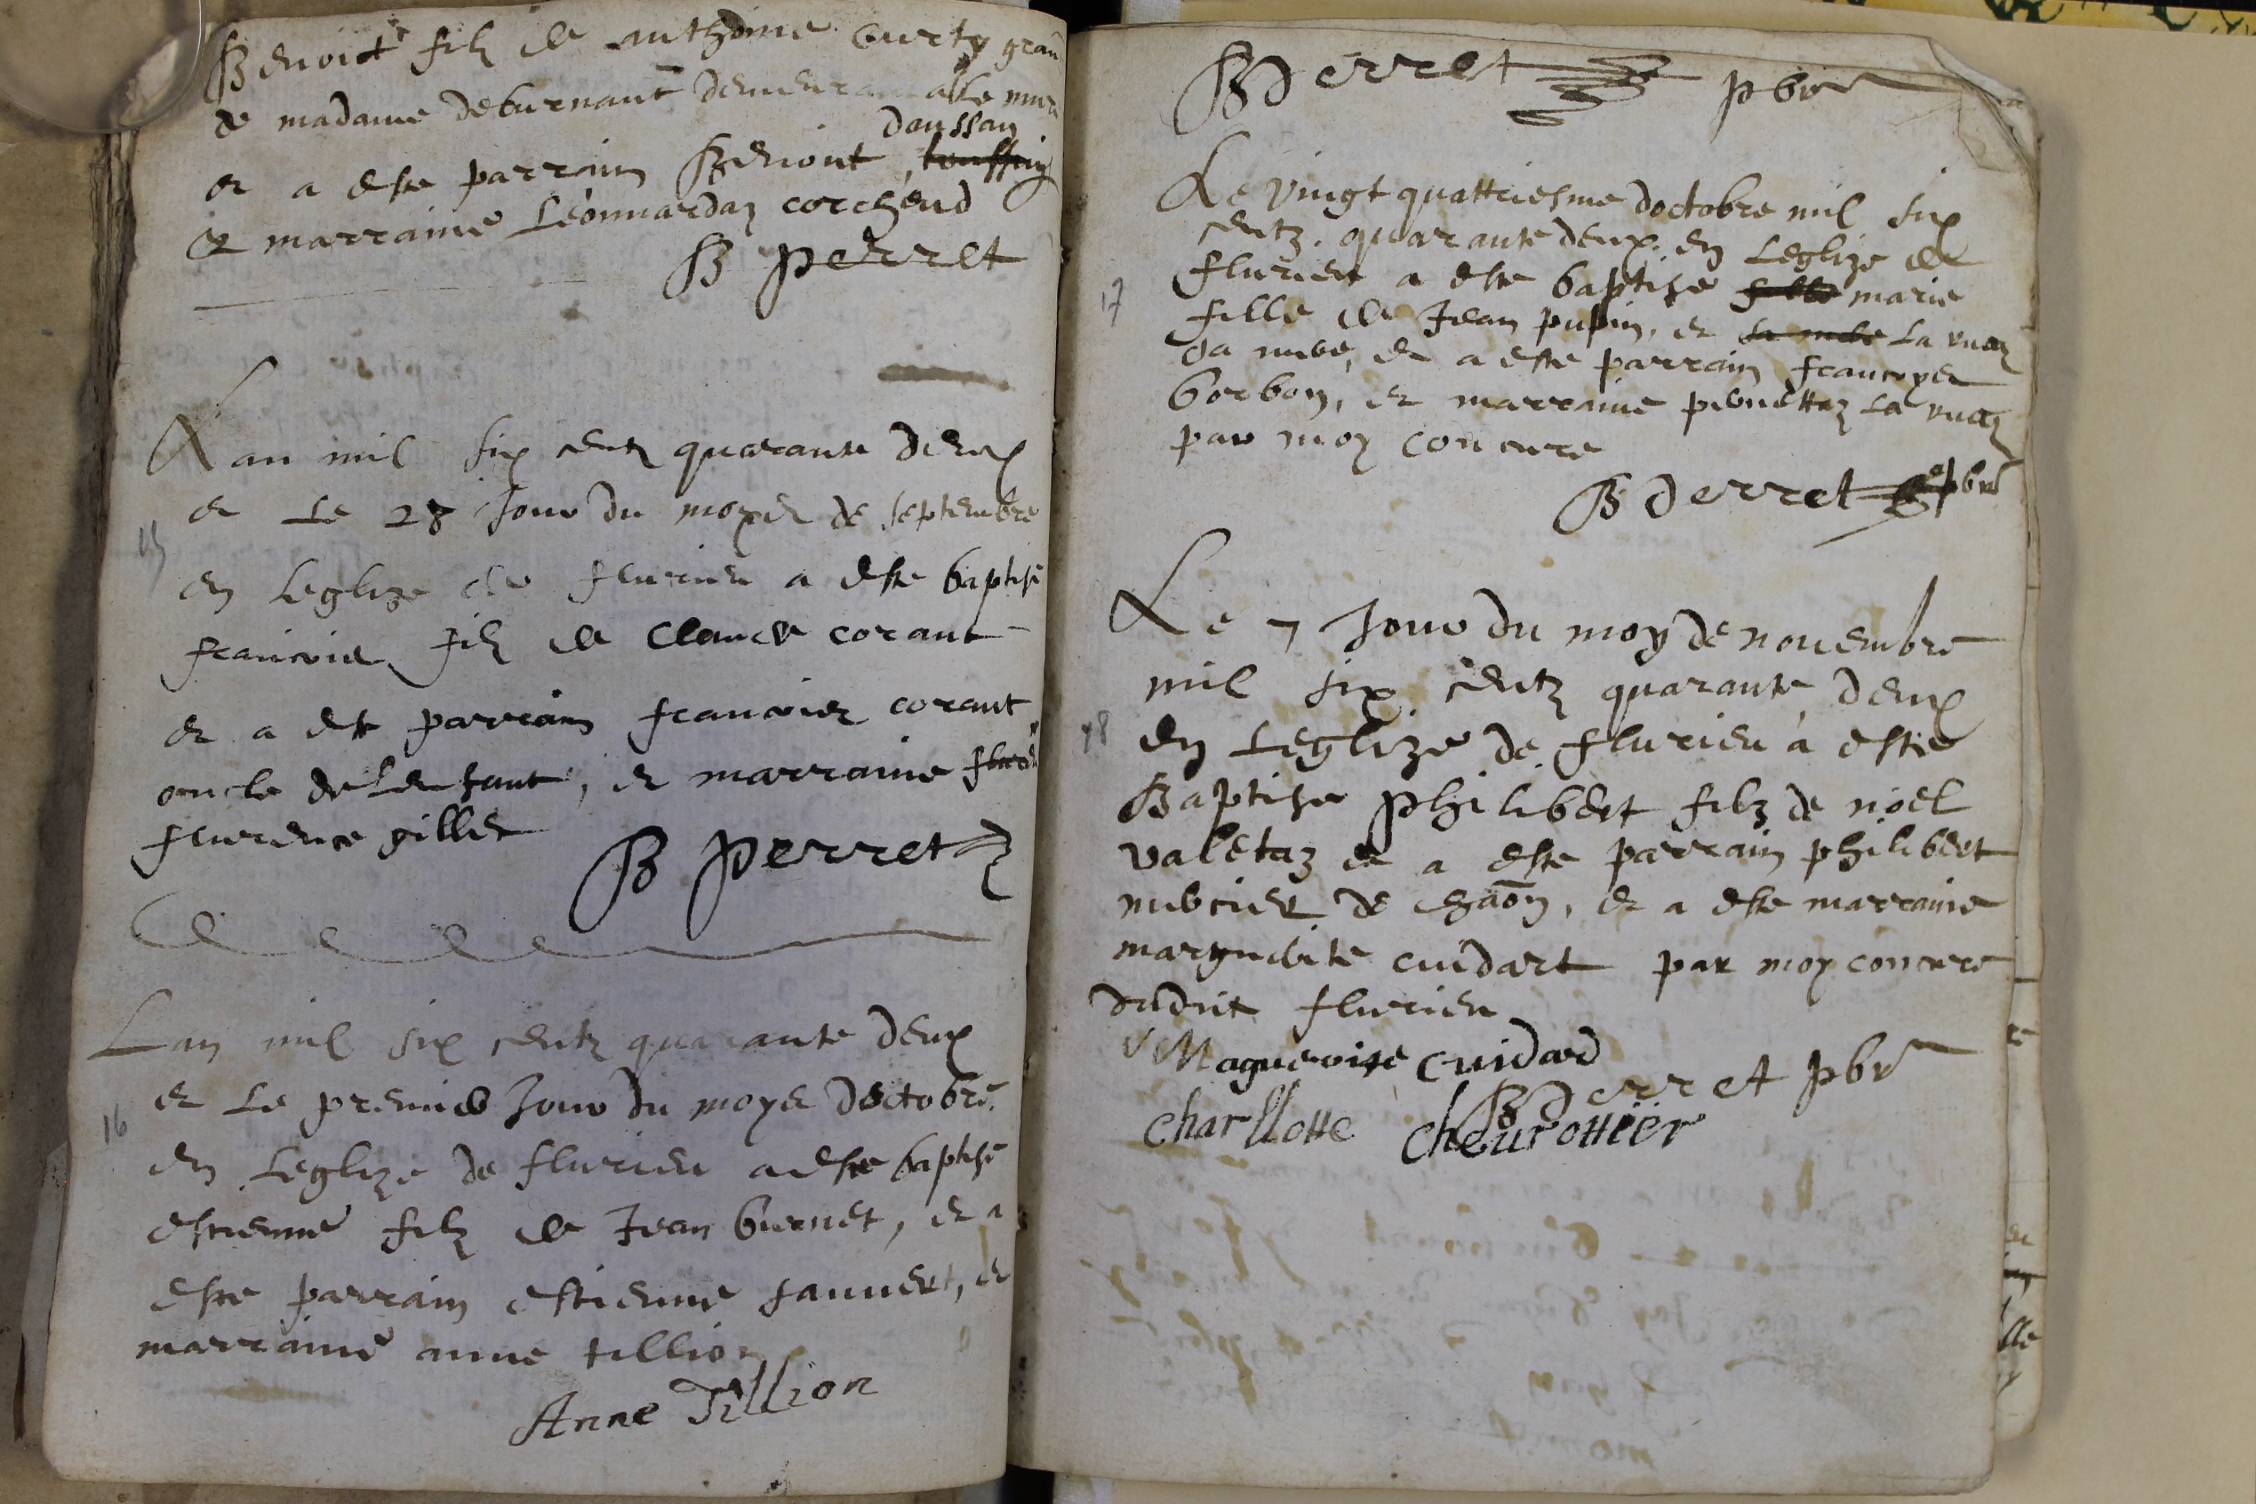 Benoict filz de anthoine Curty gran
de madame deburnant demeurant alle mure
doussan
et a este parrain Benoict
& marraine Leonnardaz corchend
B perret
Lan mil six centz quarante deux
15
et Le 28 Jour du moyes de septembre
en Leglize de flurieu a este baptise
francois filz de Claude corant
et a este parrain francois corant
oncle de Lenfant, et marraine
flurence gillet
B perret
Lan mil six centz quarante deux
16
et Le premier Jour du moyes doctobre
en Leglize de flurieu a este baptise
estienne filz de Jean burnet, et a
este parrain estienne fauvert, et
marraine anne tillion
Anne Tillion
B derret pbre
Le vingt quattriesme doctobre mil six
centz quarante deux en Leglize de
17
flurieu a este baptise fille marie
fille de Jean pupin, et La
sa mere, et a este parrain francoyes
borbon, et marraine pernettaz La
par moy concure
B derret pbre
Le 7 Jour du moy de novembre
mil six centz quarante deux
18
en Leglize de flurieu a este
Baptise philibert filz de noel
valetaz et a este parrain philibert
mercier de chaon, et a este marraine
marguerite cuidart par moy concure
dudict flurieu
Magueroite Cuidard
B derret pbr
charllotte cheurottier